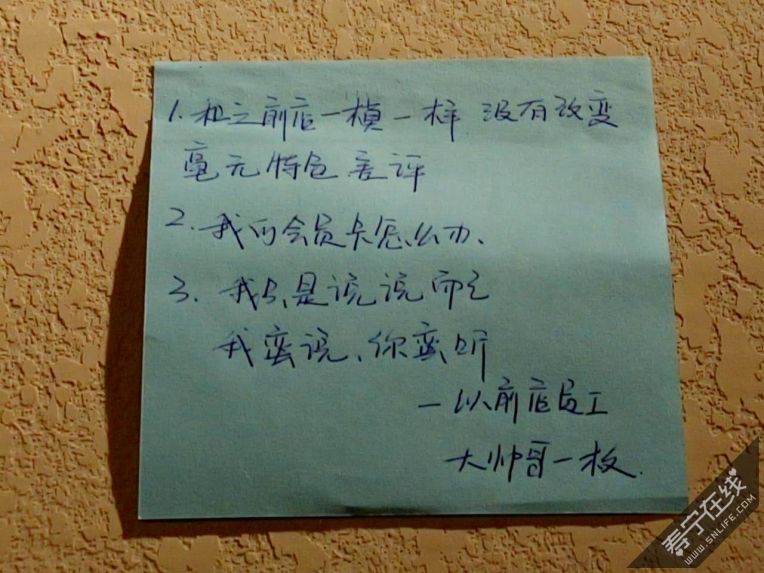 1.和之前店一模一样 没有改变
毫无特色 差评
2.我的会员卡怎么办、
3.我只是说说而已
我蛮说、你蛮听
—以前店员工
大帅哥一枚.
寿宁在线
WWW.SNLIFE.COM